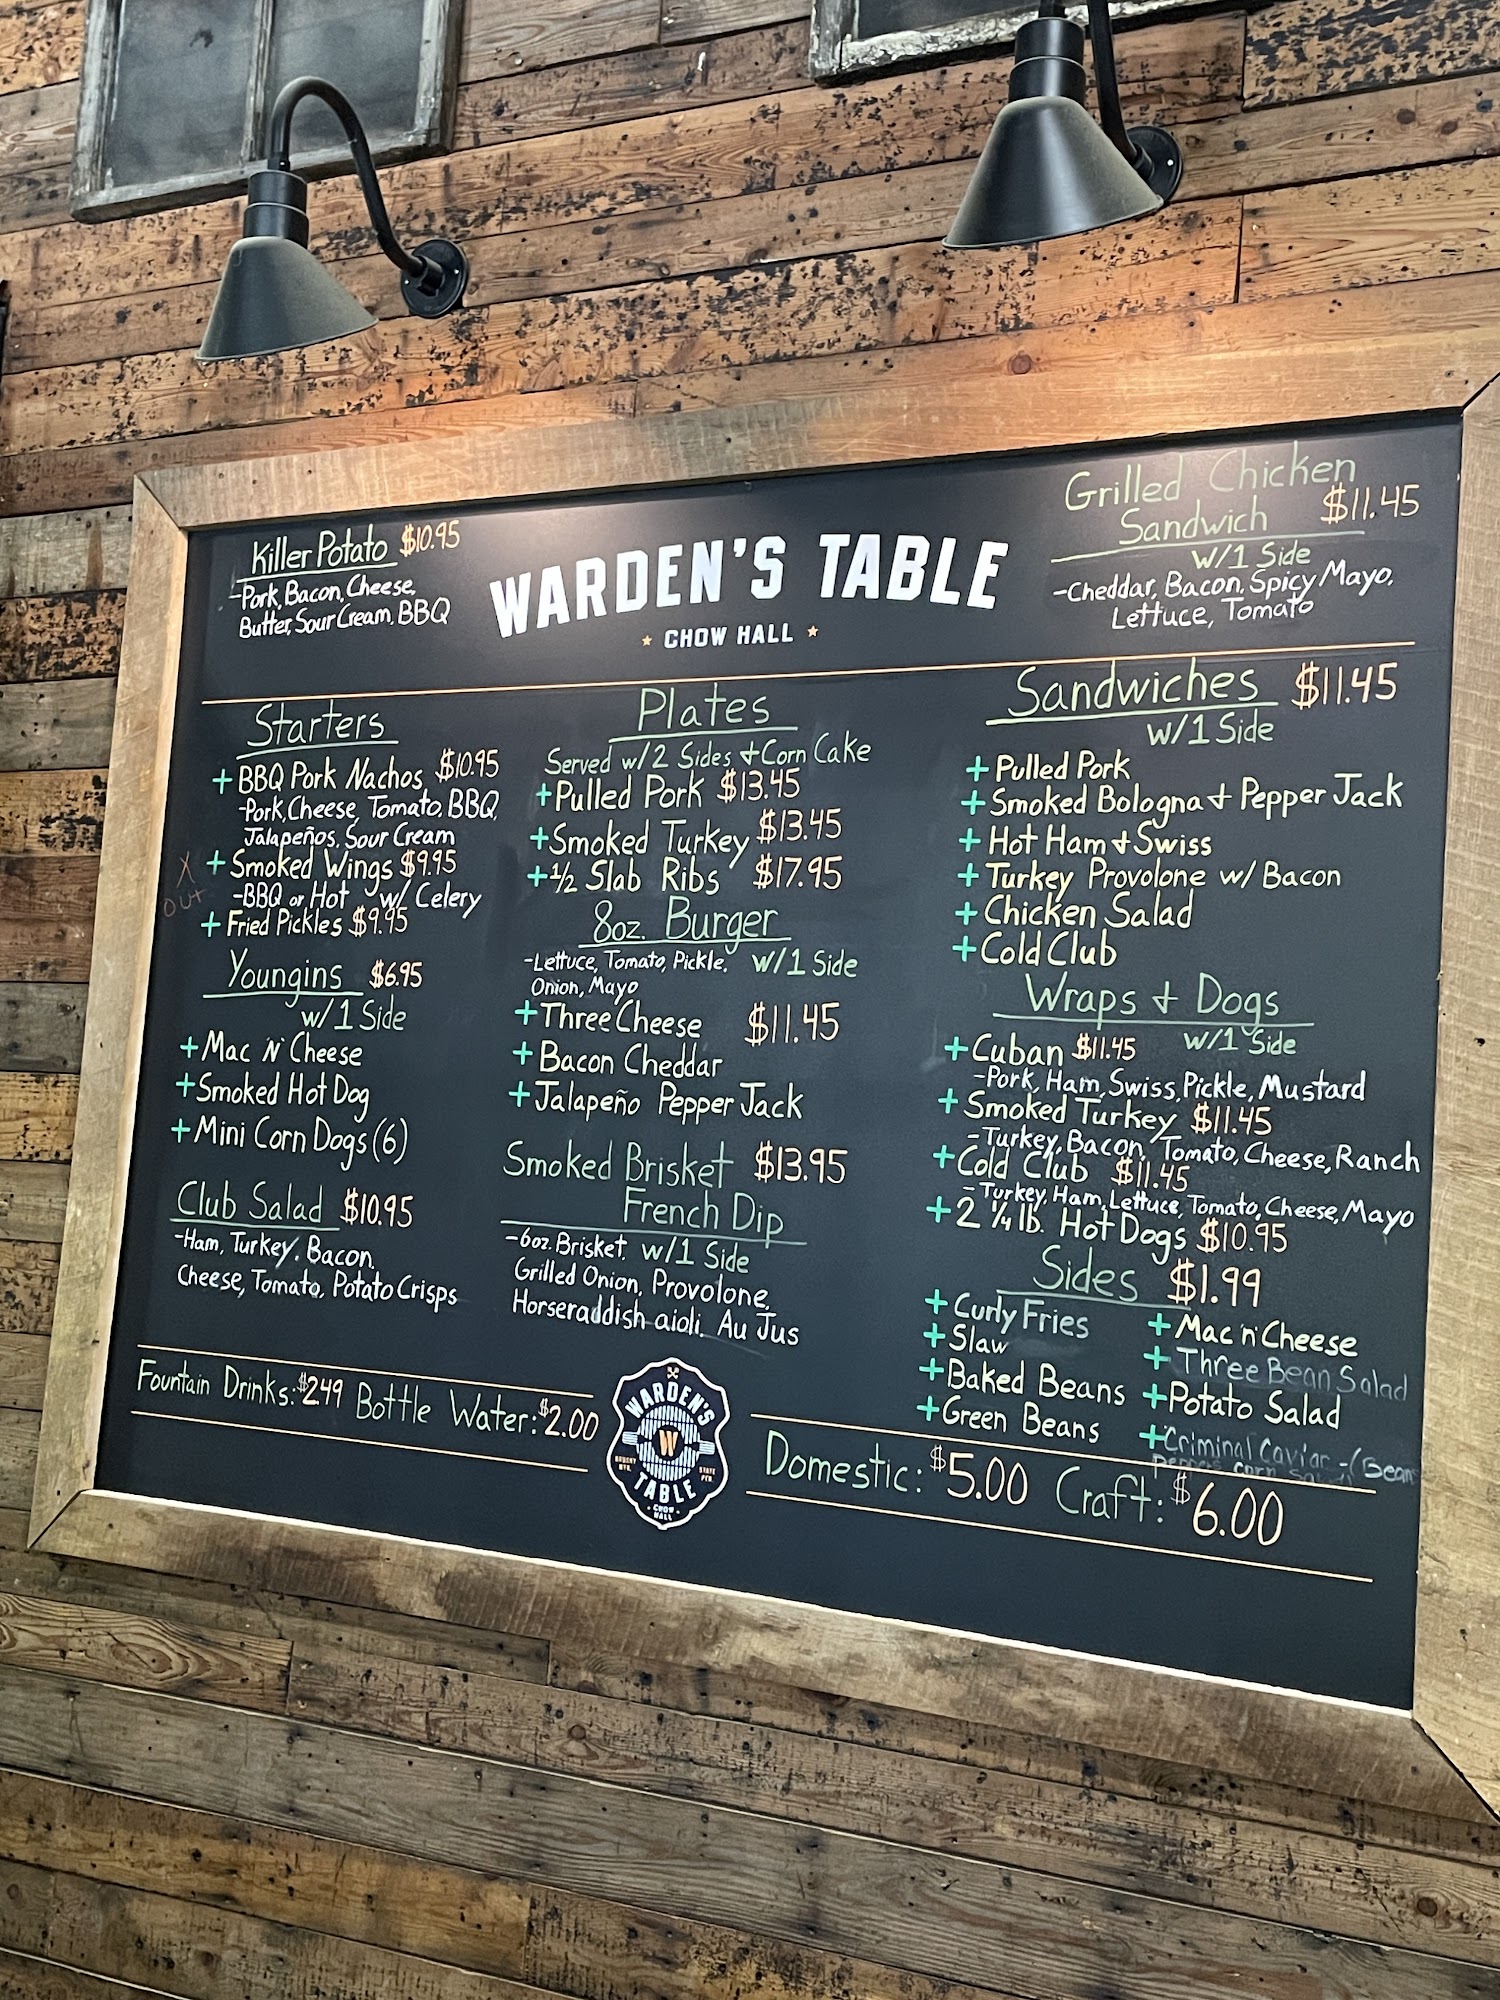 Killer Potato $10.95
-Pork, Bacon, Cheese,
Butter, Sour Cream, BBQ
WARDEN'S TABLE
CHOW HALL
Grilled Chicken
Sandwich $11.45
w/1 Side
-Cheddar, Bacon, Spicy Mayo,
Lettuce, Tomato
Starters
+ BBQ Pork Nachos $10.95
-Pork, Cheese, Tomato, BBQ,
Jalapeños, Sour Cream
X + Smoked Wings $9.95
OUT -BBQ or Hot w/ Celery
+ Fried Pickles $9.95
Youngins $6.95
w/1 Side
+ Mac 'N' Cheese
+ Smoked Hot Dog
+ Mini Corn Dogs (6)
Club Salad $10.95
-Ham, Turkey, Bacon,
Cheese, Tomato, Potato Crisps
Plates
Served w/2 Sides + Corn Cake
+ Pulled Pork $13.45
+ Smoked Turkey $13.45
+ ½ Slab Ribs $17.95
8oz. Burger
-Lettuce, Tomato, Pickle, w/1 Side
Onion, Mayo
+ Three Cheese $11.45
+ Bacon Cheddar
+ Jalapeño Pepper Jack
Smoked Brisket $13.95
French Dip
-6oz. Brisket, w/1 Side
Grilled Onion, Provolone,
Horseraddish aioli, Au Jus
Sandwiches $11.45
w/1 Side
+ Pulled Pork
+ Smoked Bologna + Pepper Jack
+ Hot Ham + Swiss
+ Turkey Provolone w/ Bacon
+ Chicken Salad
+ Cold Club
Wraps + Dogs
w/1 Side
+ Cuban $11.45
-Pork, Ham, Swiss, Pickle, Mustard
+ Smoked Turkey $11.45
-Turkey, Bacon, Tomato, Cheese, Ranch
+ Cold Club $11.45
-Turkey, Ham, Lettuce, Tomato, Cheese, Mayo
+ 2 ¼ lb. Hot Dogs $10.95
Sides $1.99
+ Curly Fries
+ Slaw
+ Baked Beans
+ Green Beans
+ Mac 'n' Cheese
+ Three Bean Salad
+ Potato Salad
+ Criminal Caviar - (Bean
Peppers corn
Fountain Drinks: $2.49 Bottle Water: $2.00
WARDEN'S
W
STATE
PEN
TABLE
CHOW
HALL
Domestic: $5.00 Craft: $6.00